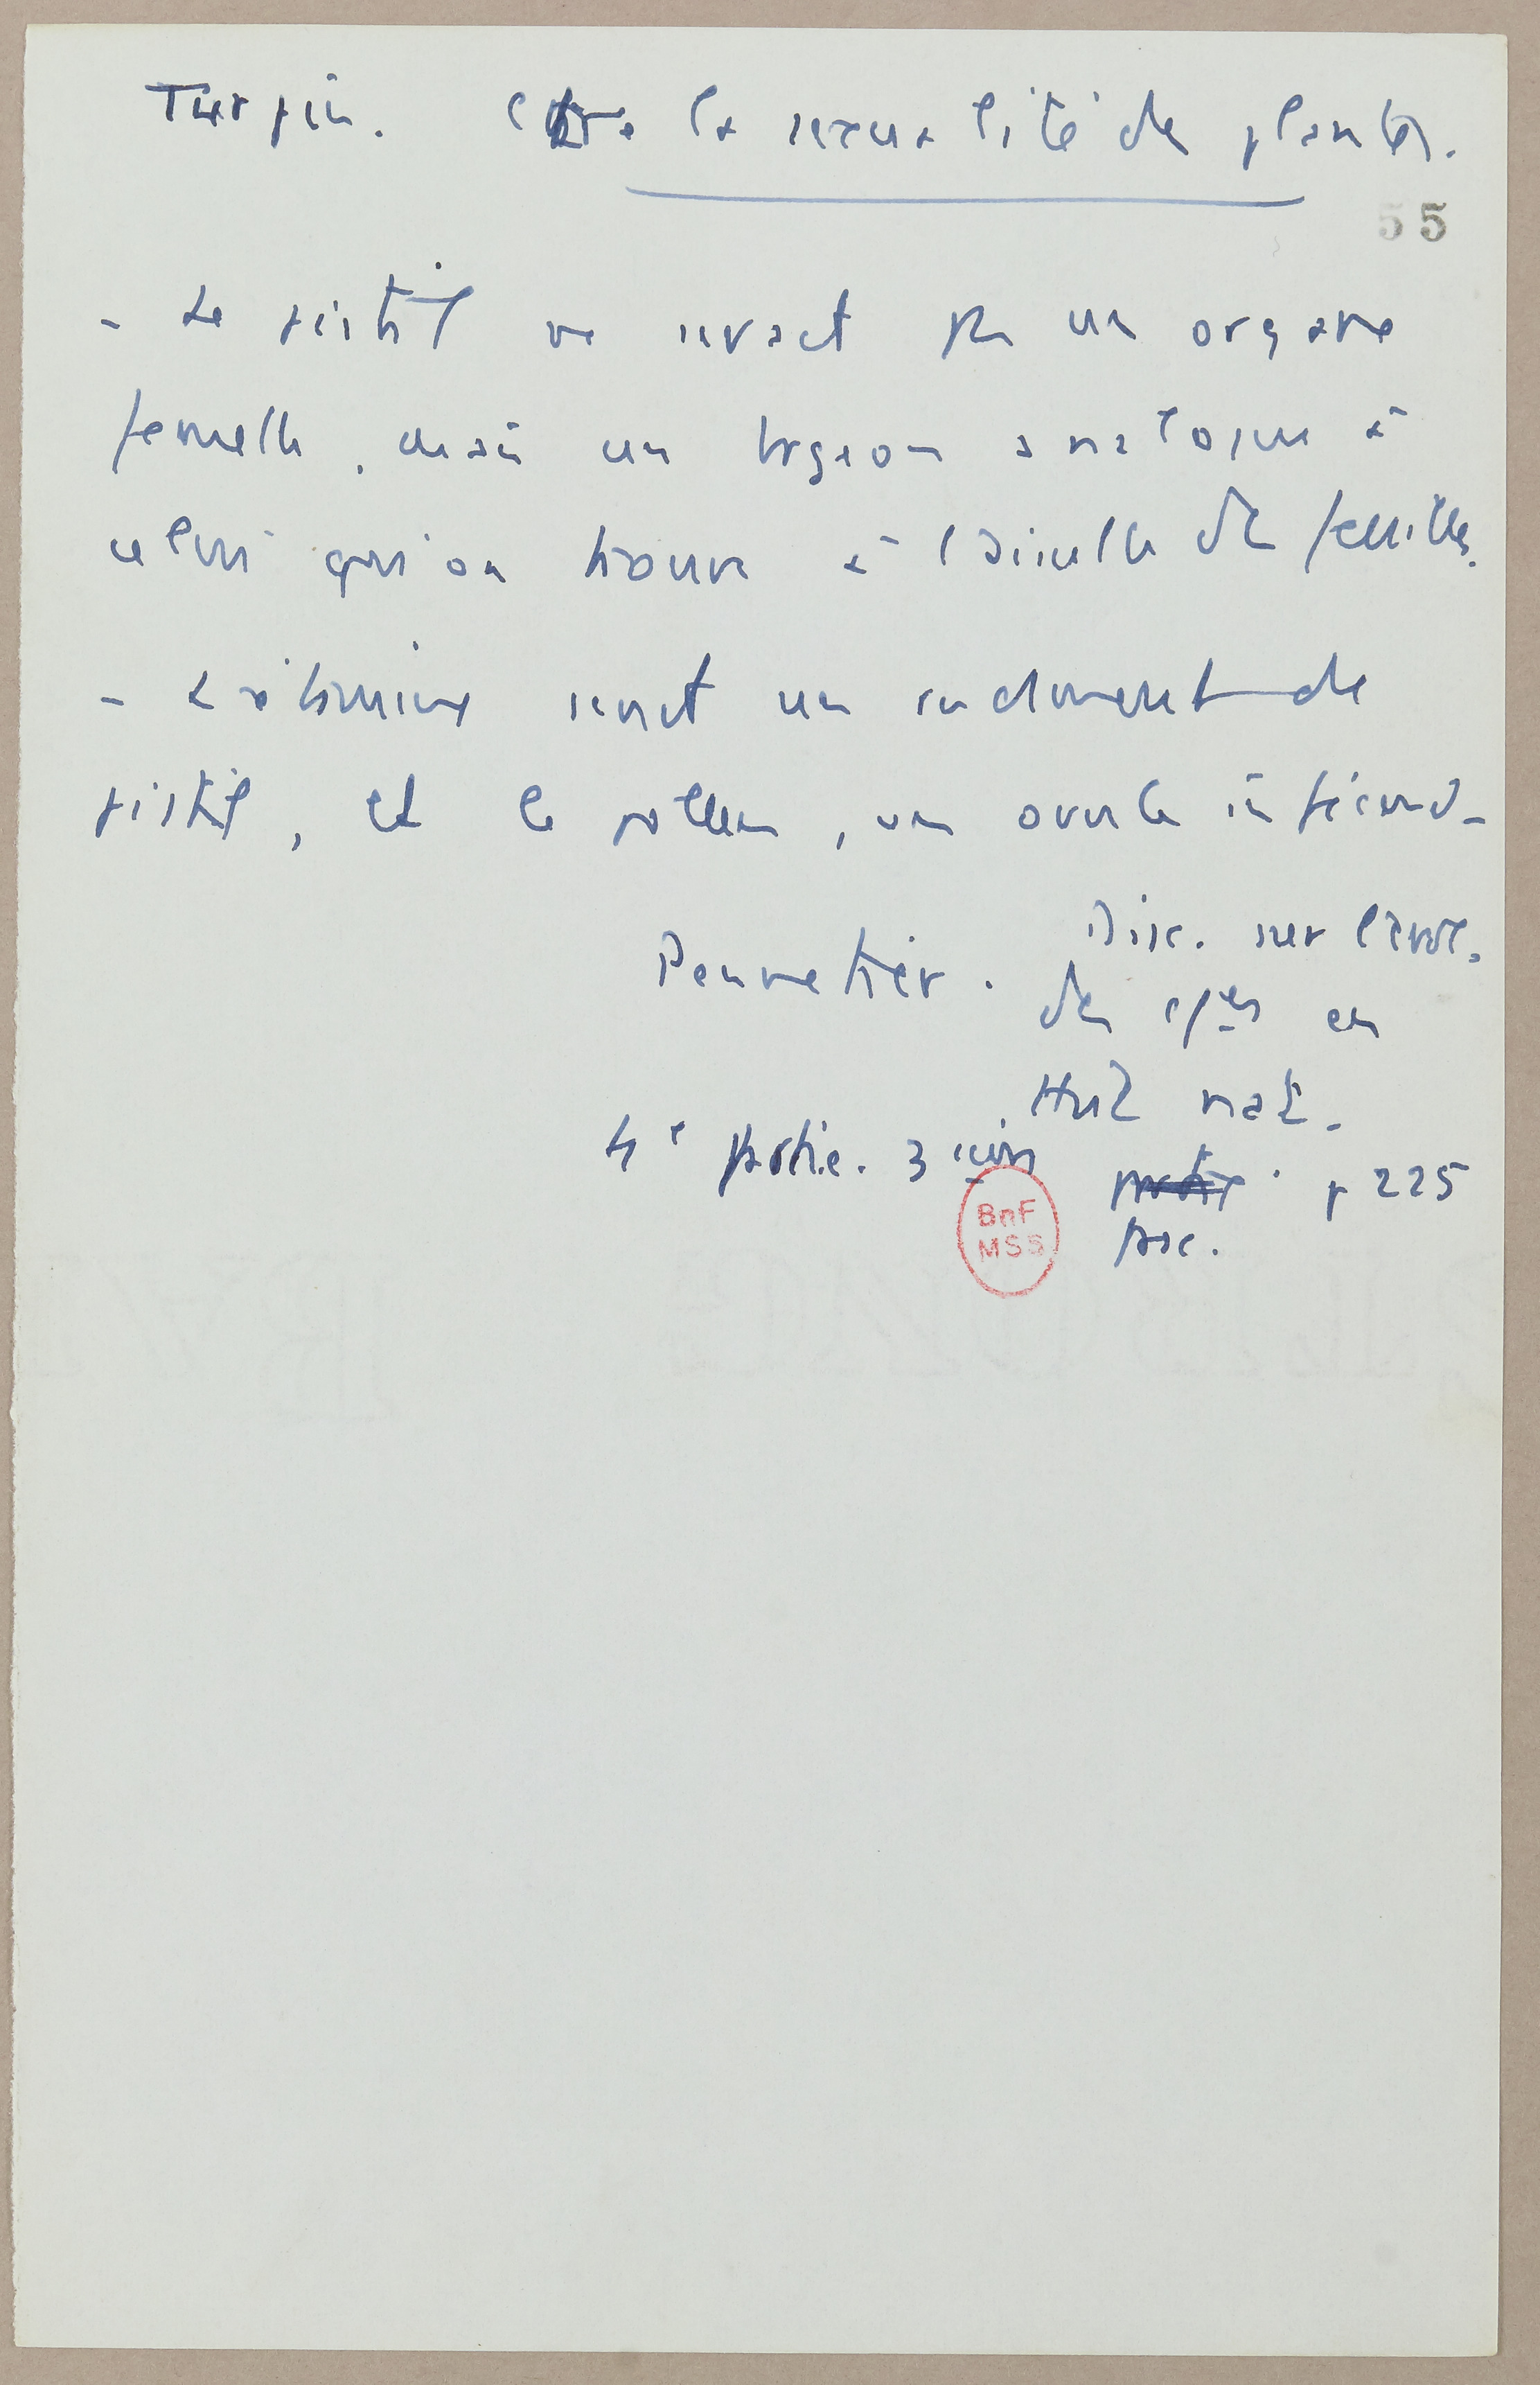 Turpin. Contre la sexualité des plantes.
55
- Le pistil ne serait pas un organe
femelle, mais un bourgeon analogue à
celui qu'on trouve à l'aisselle des feuilles.
- L'étamine serait un rudiment de
pistil, et le pollen, un ovule infécond.
Pennetier. Disc. sur l'évol.
des c/ces en
Hist nat.
4e partie. 3 p 225
fasc.
BnF
MSS